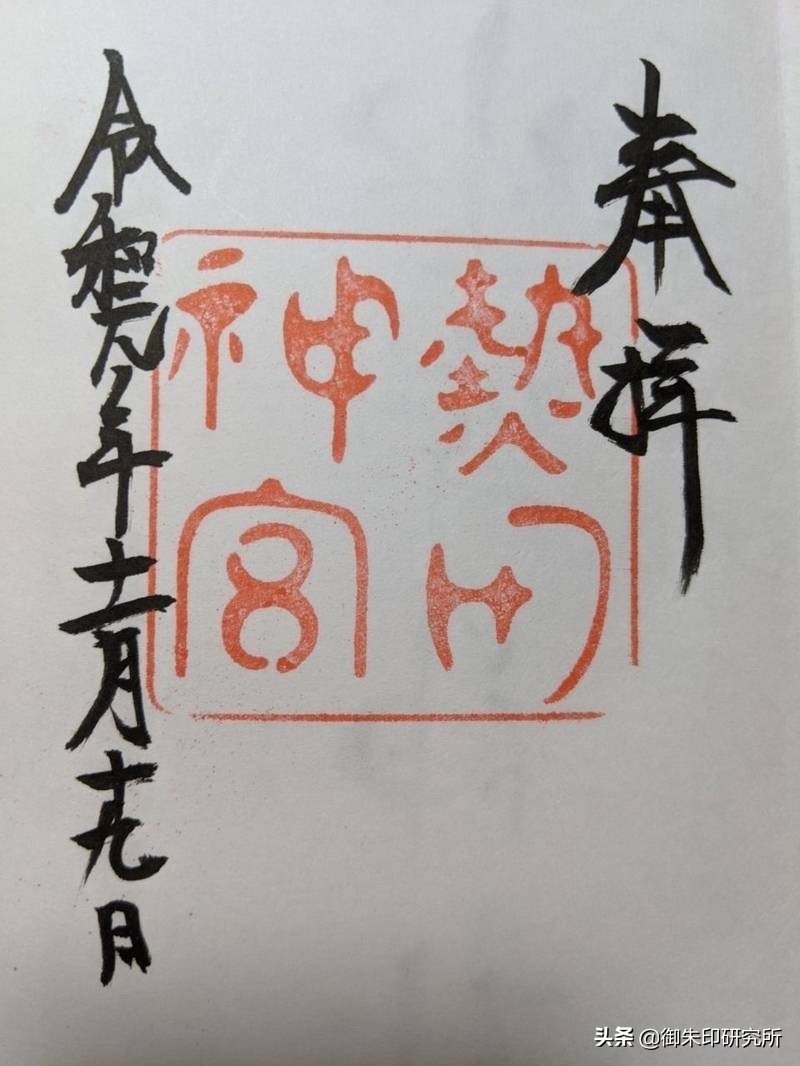 奉拝
熱田
神宮
令和元年十一月廿九日
头条 @御朱印研究所